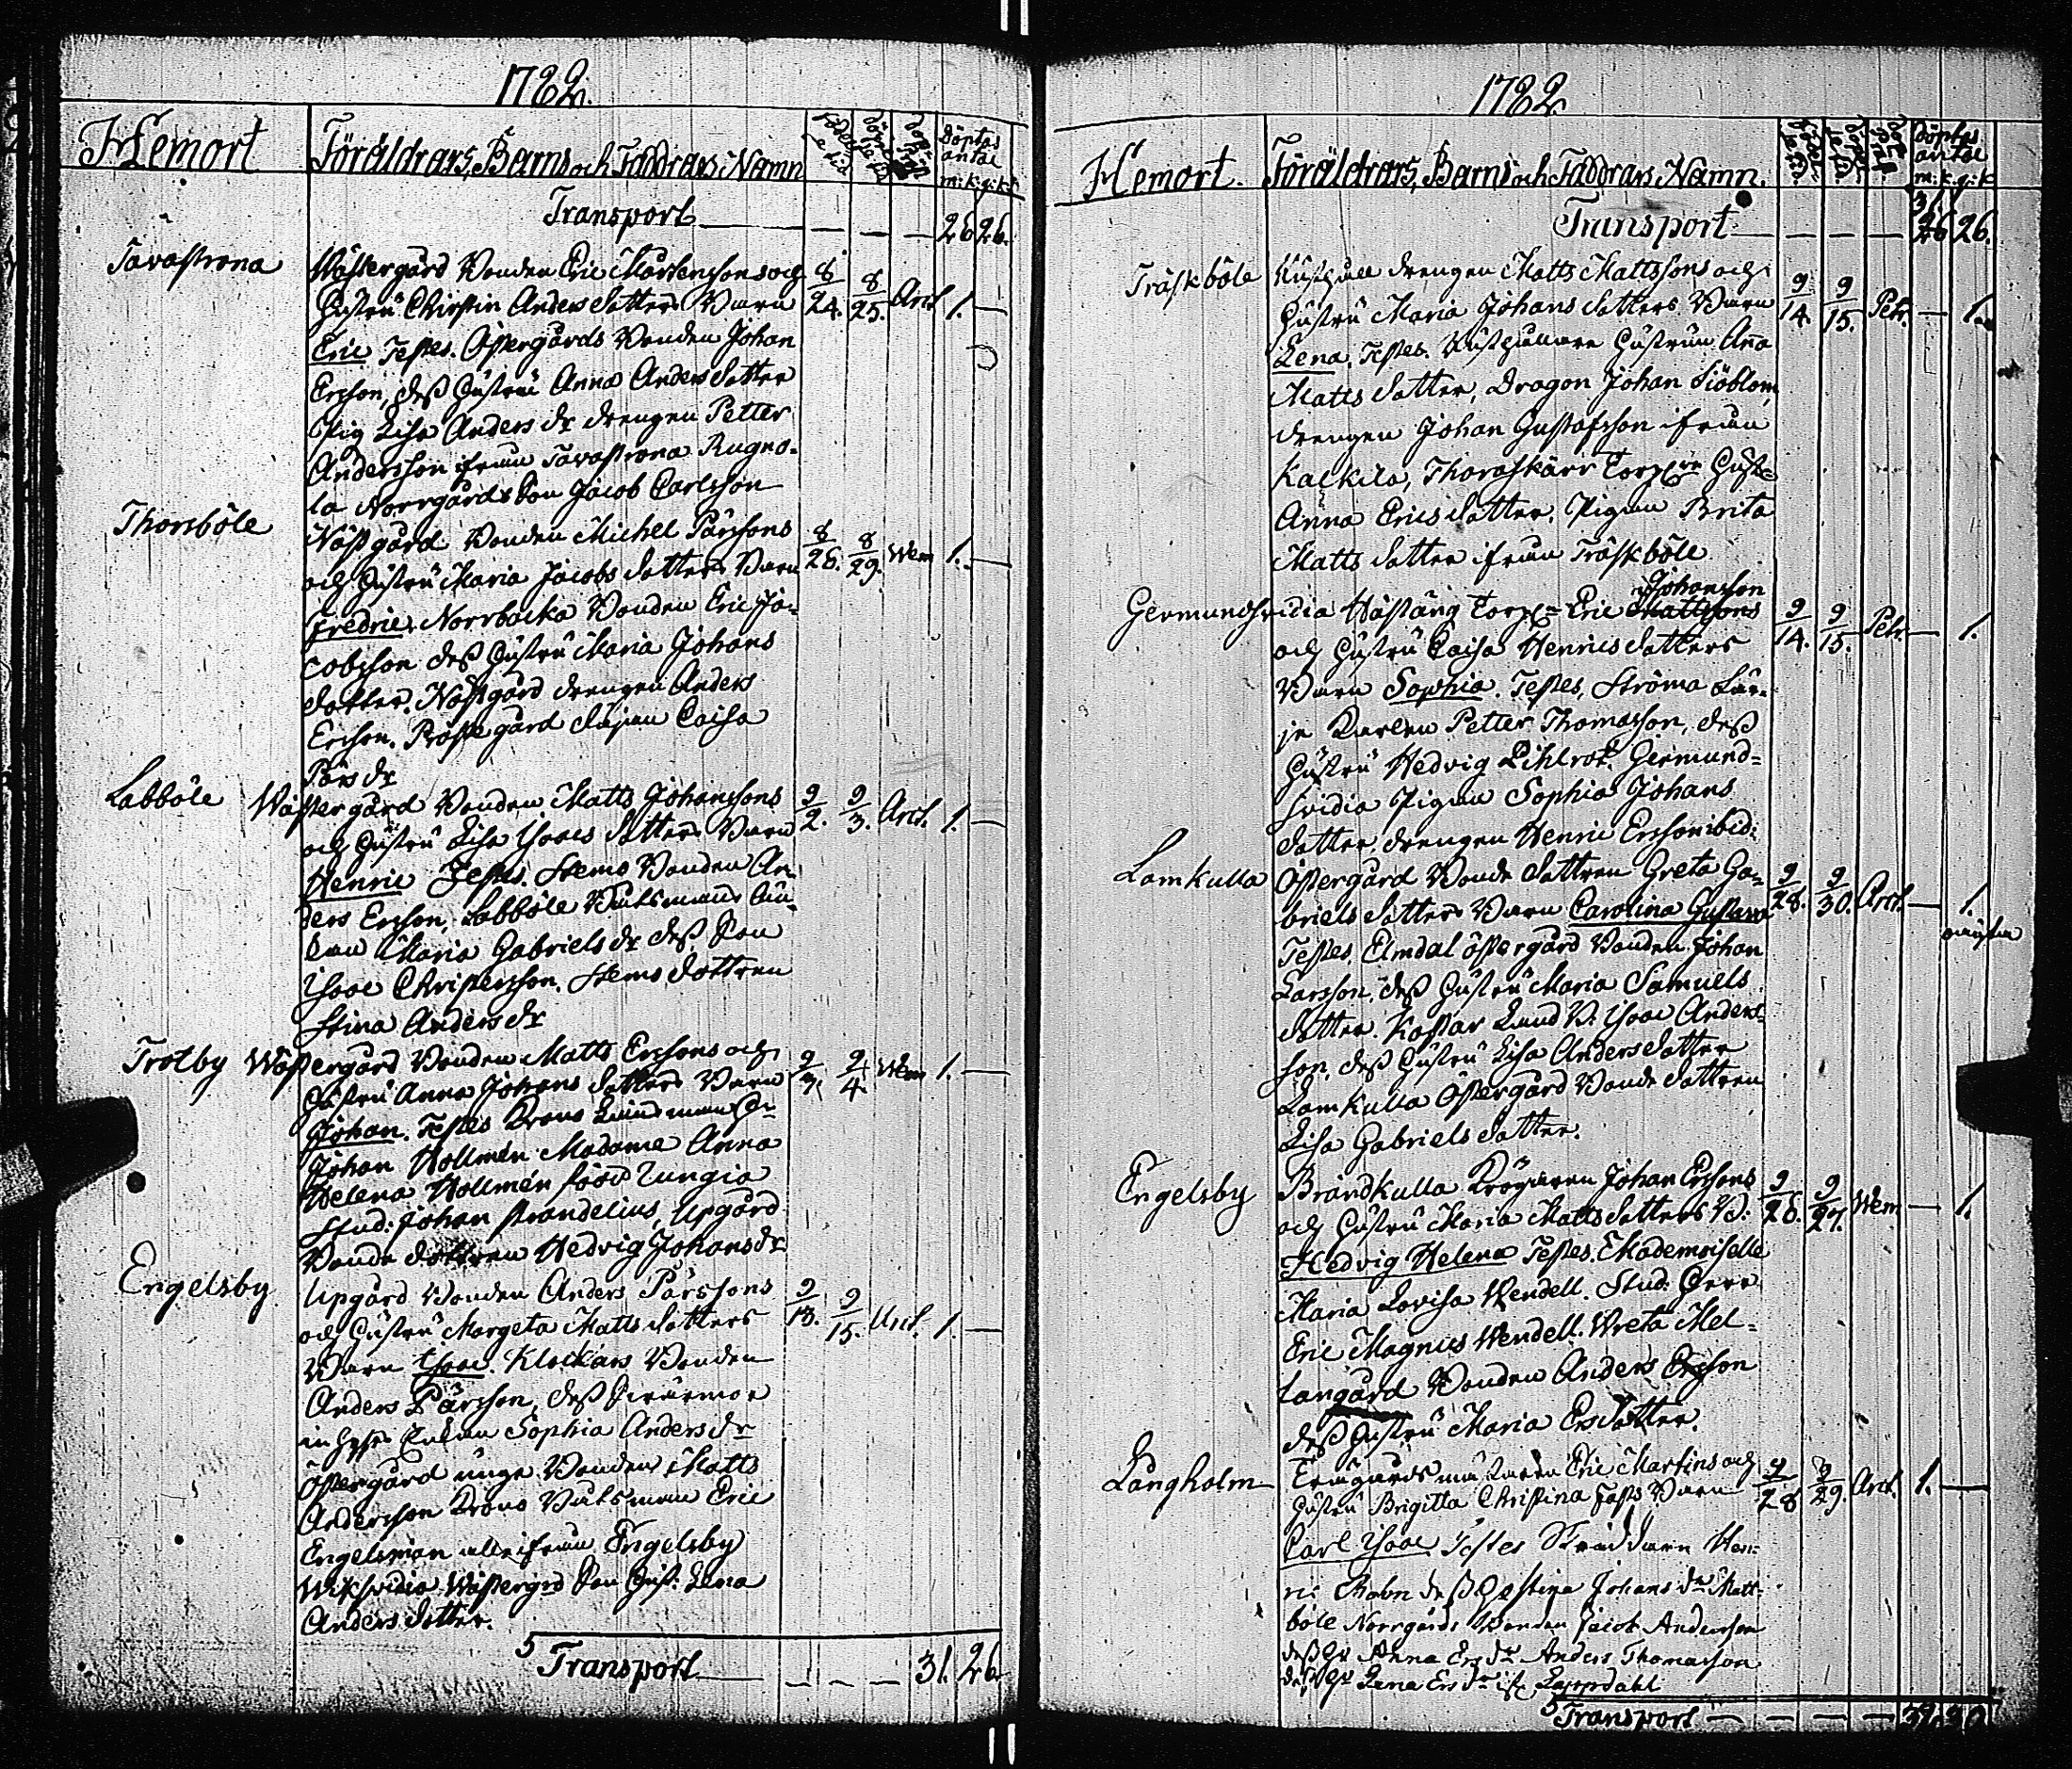 1782.
Hemort Föräldrars, Barns och Faddrars Namn Döptas antal
m: k. q: k:
Transport 26 26.
Tavastrona Wästergård Bonden Eric Mårtenssons och 8/24. 8/25. Arct 1. —
Hustru Christin Anders Dotters Barn
Eric Testes. Östergårds Bonden Johan
Ersson, dess Hustru Anna Anders Dotter
Pig Lisa Anders dr drengen Petter
Andersson ifrån Tavastrona Rugno-
la Norrgårds Son Jacob Carlsson
Thorsböle Näsgård Bonden Michel Pärssons 8/28. 8/29. Wem 1. —
och Hustru Maria Jacobs Dotters Barn
Fredric. Norrbacka Bonden Eric Ja-
cobsson dess Hustru Maria Johans
dotter. Näsgård drengen Anders
Ersson. Prästegård Caisa
Pärs dr
Labböle Wästergård Bonden Matts Johanssons 9/2. 9/3. Arct. 1. —
och Hustru Lisa Isaacs Dotters Barn
Henric Testes. Stems Bonden An-
ders Ersson, Labböle Båtsmans En-
kan Maria Gabriels dr dess Son
Isaac Christersson. Stems dottren
Stina Anders dr
Trotby Wästergård Bonden Matts Erssons och 9/3. 9/4. Wem 1. —
Hustru Anna Johans Dotters Barn
Johan. Testes Krono Länsman Hr
Johan Hollmén Madame Anna
Helena Hollmén född Zungia
Stud: Johan Strandelius, Upgård
Bonde dottren Hedvig Johans dr
Engelsby Upgård Bonden Anders Pärssons 9/13. 9/15. Arct. 1. —
och Hustru Margeta Matts Dotters
Barn Isaac. Klockars Bonden
Anders Pärsson, dess Svärmor
Enkan Sophia Anders dr
Östergård unge Bonden Matts
Andersson Krono Båtsman Eric
Engelsman alle ifrån Engelsby
Wiksvidia Wästergrd Son Hust. Lena
Anders Dotter.
5 Transport — 31. 26
1782.
Hemort. Föräldrars, Barns och Faddrars Namn. Döptas antal
m: k. q: k
31
Transport 26 26.
Träskböle Rusthåll drengen Matts Mattssons och 9/14. 9/15. Petr. — 1.
Hustru Maria Johans Dotters Barn
Lena. Testes. Rusthållare Hustrun Anna
Matts Dotter, Dragon Johan Siöblom,
drengen Johan Gustafsson ifrån
Kalkila, Thoraskärr Hust:
Anna Erics Dotter. Pigan Brita
Matts Dotter ifrån Träskböle
Johansson
Germundsvidia Hästäng Torp: Eric Mattssons 9/14. 9/15. Petr. — 1.
och Hustru Caisa Henrics Dotters
Barn Sophia. Testes, Ströma Fär-
je Karlen Petter Thomasson, dess
Hustru Hedvig Pihlrot. Germund-
svidia Pigan Sophia Johans
Dotter, drengen Henric Ersson ibid:
Lamkulla Östergård Bonde Dottren Greta Ga- 9/28. 9/30. Arct. — 1.
briels Dotters Barn Carolina Gustava
Testes, Elmdal Östergård Bonden Johan
Larsson, dess Hustru Maria Samuels
Dotter. Kastar Lund B. Isaac Anders-
son, dess Hustru Lisa Anders Dotter
Lamkulla Östergård Bonde Dottren
Lisa Gabriels Dotter.
Engelsby Brändkulla Krögaren Johan Erssons 9/26. 9/27. Wem — 1.
och Hustru Maria Matts Dotters B:
Hedvig Helena Testes. Mademoiselle
Maria Lovisa Wendell. Stud: Herr
Eric Magnus Wendell. Wreta Mel-
langård Bonden Anders Ersson
dess Hustru Maria Ers Dotter.
Långholm Trägårdsmästaren Eric Martins och 9/28 9/29. Arct. 1. —
Hustru Brigitta Christina Fasts Barn
Carl Isaac Testes Skräddaren Hen-
ric dess H Stina Johans dr Matt-
böle Norrgårds Bonden Jacob Andersson
dess H: Anna Ers dr Anders Thomasson
dess H: Lena Ers dr if: Lappdahl
5 Transport — 32. 30